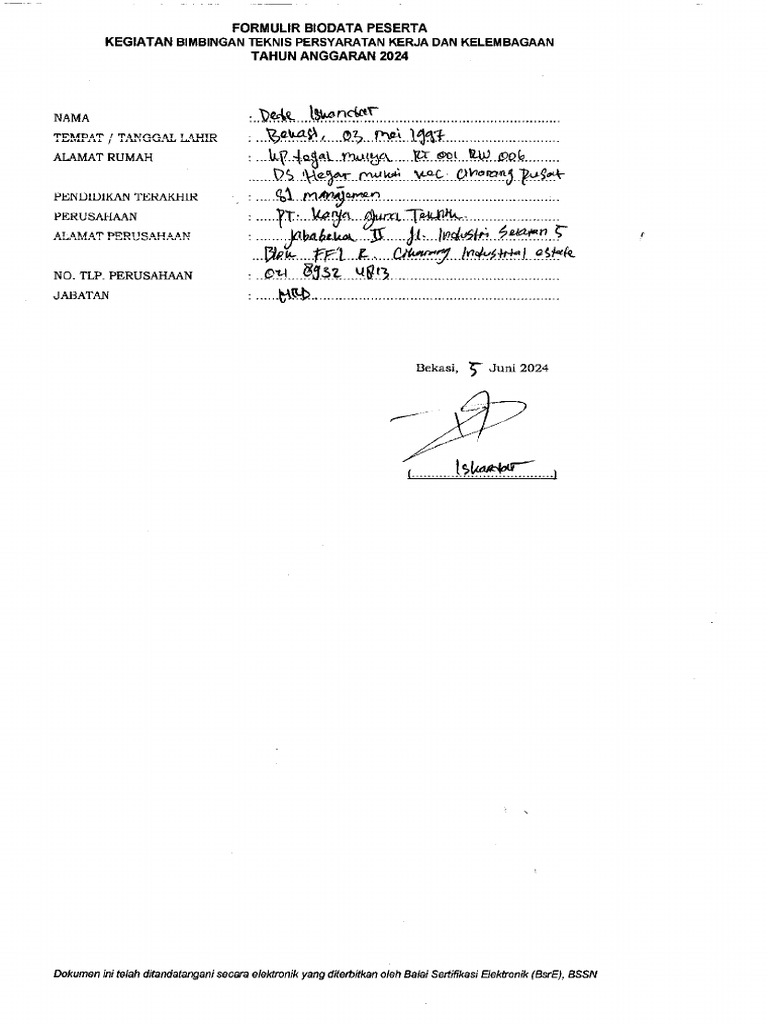 FORMULIR BIODATA PESERTA
KEGIATAN BIMBINGAN TEKNIS PERSYARATAN KERJA DAN KELEMBAGAAN
TAHUN ANGGARAN 2024
NAMA : Dede Iskandar
TEMPAT / TANGGAL LAHIR : Bekasi, 03 mei 1997
ALAMAT RUMAH : kp tegal mulya RT 001 RW 006
DS Hegar mukti kec Cikarang pusat
PENDIDIKAN TERAKHIR : S1 manajemen
PERUSAHAAN : PT. Karya Teknik
ALAMAT PERUSAHAAN : Jababeka II Jl. Industri Selatan 5
Blok FF1 E. Cikarang Industrial estate
NO. TLP. PERUSAHAAN : 021 8932 4813
JABATAN : HRD
Bekasi, 5 Juni 2024
(Iskandar)
Dokumen ini telah ditandatangani secara elektronik yang diterbitkan oleh Balai Sertifikasi Elektronik (BsrE), BSSN